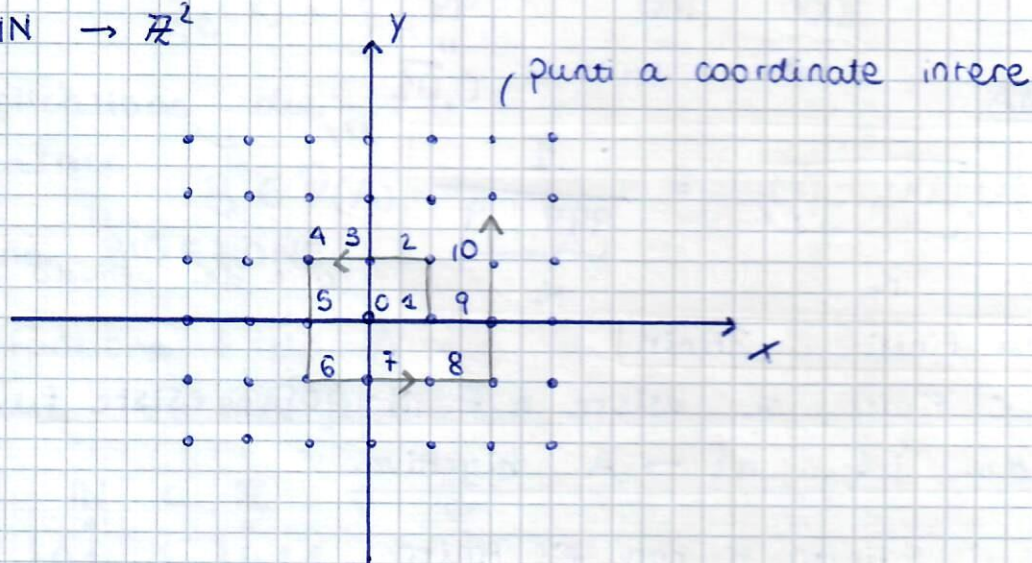 IN → ℤ²
y
punti a coordinate intere
4 3 2 10
5 0 1 9
x
6 7 8